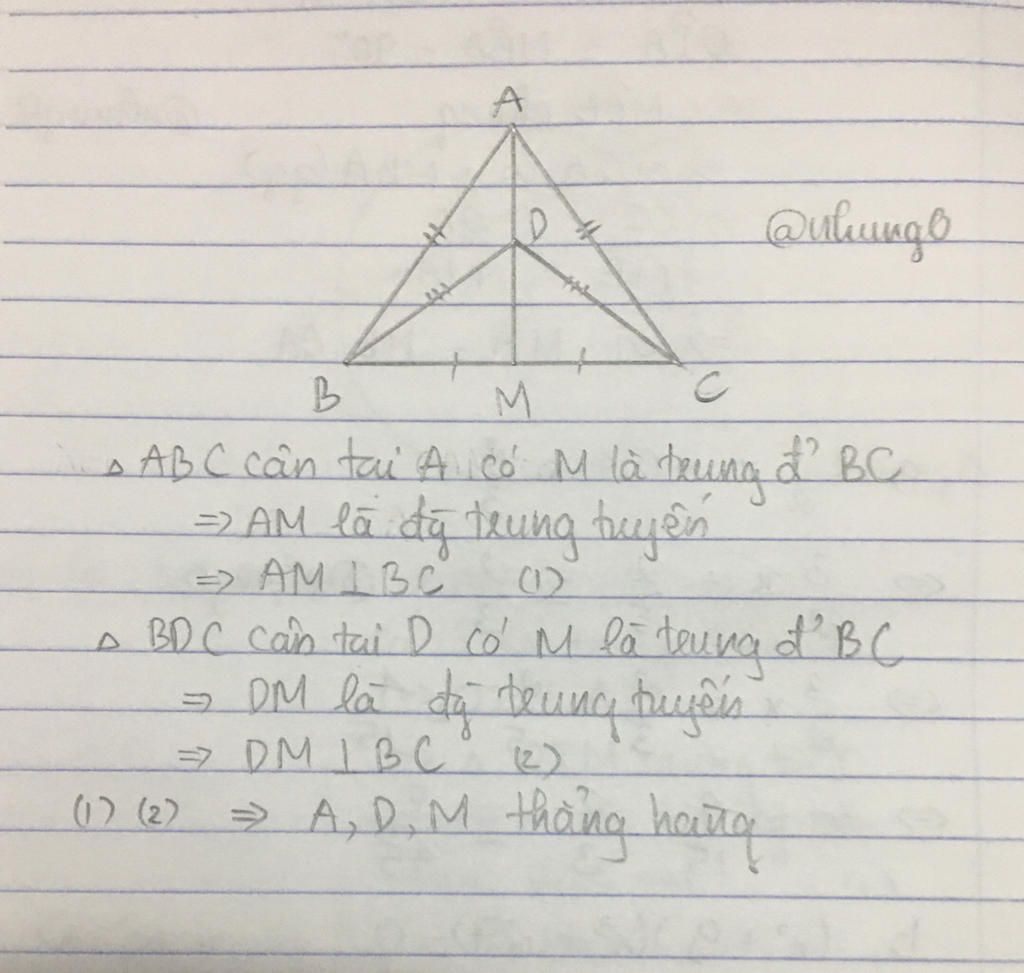 A
D
@nhung8
B
M
C
Δ ABC cân tai A có M là trung đ' BC
=> AM là đg trung tuyến
=> AM ⊥ BC (1)
Δ BDC cân tai D có M là trung đ' BC
=> DM là đg trung tuyến
=> DM ⊥ BC (2)
(1) (2) => A, D, M thẳng hàng